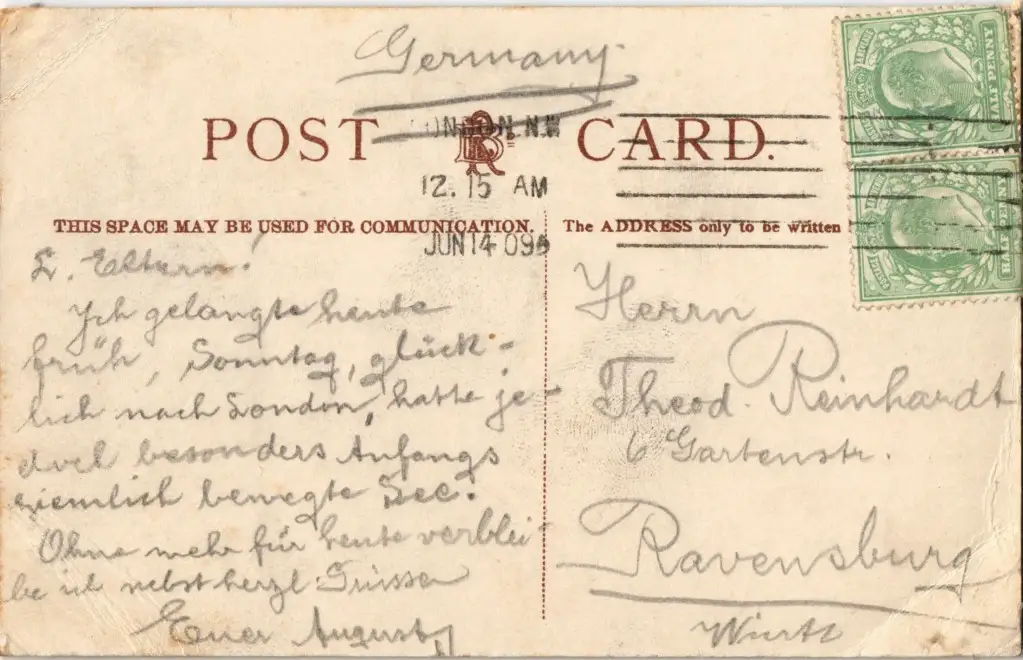 Germany
POST CARD.
LONDON. N.W
12. 15 AM
JUN 14 09
THIS SPACE MAY BE USED FOR COMMUNICATION.
The ADDRESS only to be written
HALF PENNY
HALF PENNY
L. Eltern!
Ich gelangte heute
früh, Sonntag, glück-
lich nach London, hatte je-
doch besonders Anfangs
ziemlich bewegte See.
Ohne mehr für heute verblei-
be ich nebst herzl. Grüssen
Euer August
Herrn
Theod. Reinhardt
6 Gartenstr.
Ravensburg
Württ